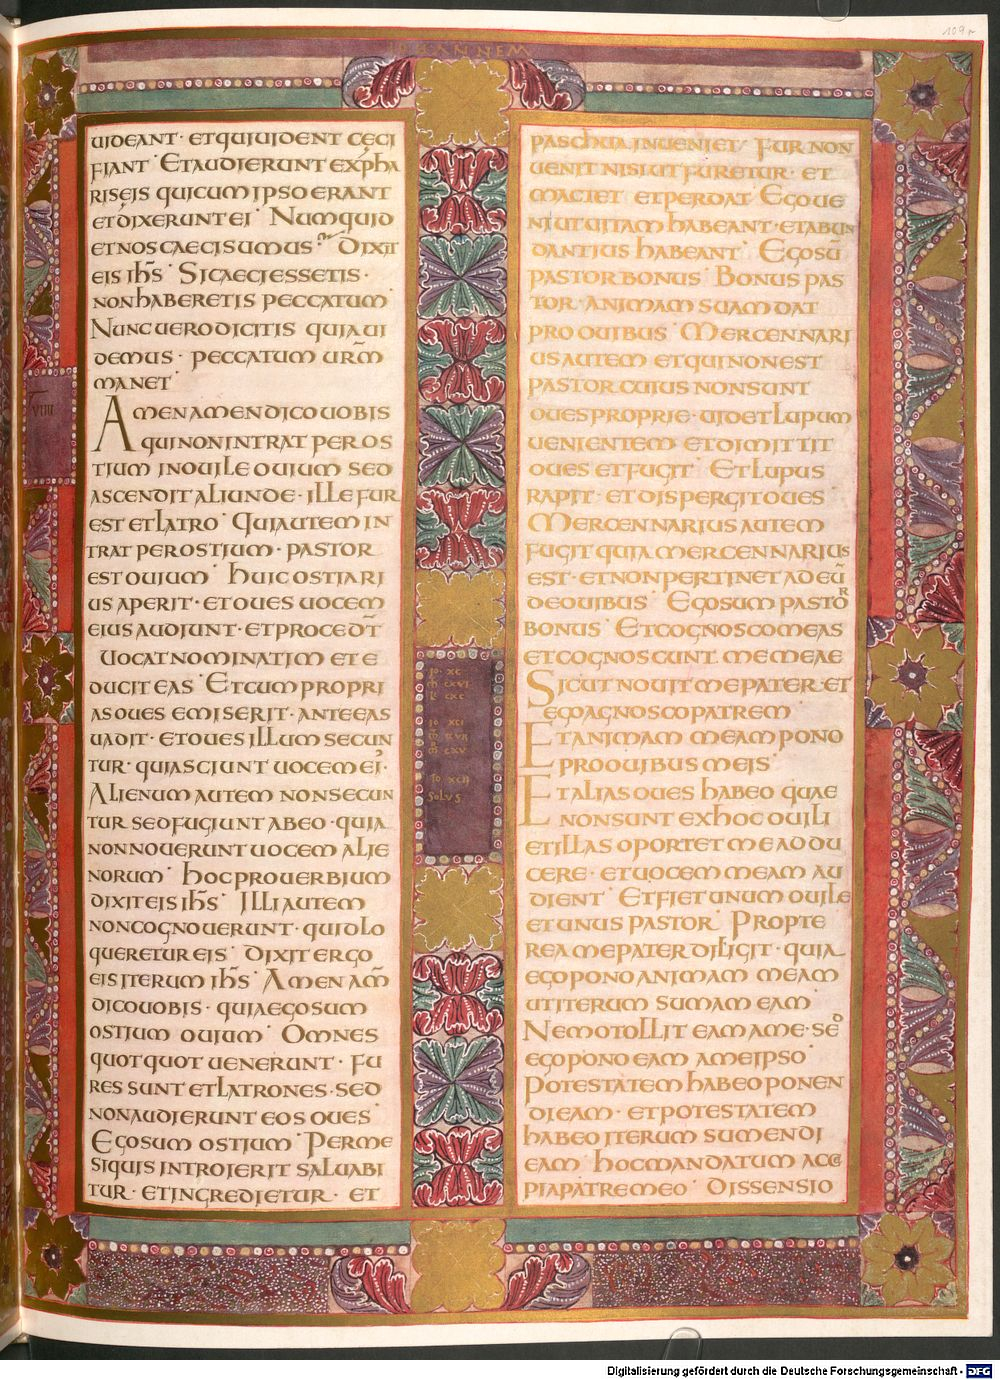 IOHANNEM
109r
UIDEANT · ET QUI UIDENT CECI
FIANT · ET AUDIERUNT EX PHA
RISEIS QUI CUM IPSO ERANT
ET DIXERUNT EI · NUMQUID
ET NOS CAECI SUMUS · DIXIT
EIS IHS · SI CAECI ESSETIS ·
NON HABERETIS PECCATUM ·
NUNC UERO DICITIS QUIA UI
DEMUS · PECCATUM URM
MANET ·
VIIII
AMEN AMEN DICO UOBIS
QUI NON INTRAT PER OS
TIUM IN OUILE OUIUM SED
ASCENDIT ALIUNDE · ILLE FUR
EST ET LATRO · QUI AUTEM IN
TRAT PER OSTIUM · PASTOR
EST OUIUM · HUIC OSTIARI
US APERIT · ET OUES UOCEM
EIUS AUDIUNT · ET PROCEDT
UOCAT NOMINATIM ET E
DUCIT EAS · ET CUM PROPRI
AS OUES EMISERIT · ANTE EAS
UADIT · ET OUES ILLUM SECUN
TUR · QUIA SCIUNT UOCEM EI ·
ALIENUM AUTEM NON SECUN
TUR SED FUGIUNT AB EO · QUIA
NON NOUERUNT UOCEM ALIE
NORUM · HOC PROUERBIUM
DIXIT EIS IHS · ILLI AUTEM
NON COGNOUERUNT · QUID LO
QUERETUR EIS · DIXIT ERGO
EIS ITERUM IHS · AMEN AM
DICO UOBIS · QUIA EGO SUM
OSTIUM OUIUM · OMNES
QUOTQUOT UENERUNT · FU
RES SUNT ET LATRONES · SED
NON AUDIERUNT EOS OUES ·
EGO SUM OSTIUM · PER ME
SI QUIS INTROIERIT SALUABI
TUR · ET INGREDIETUR · ET
IO XC
IO XCI
IO XCII
SOLUS
PASCHUA INUENIET · FUR NON
UENIT NISI UT FURETUR · ET
MACTET ET PERDAT · EGO UE
NI UT UITAM HABEANT · ET ABUN
DANTIUS HABEANT · EGO SU
PASTOR BONUS · BONUS PAS
TOR · ANIMAM SUAM DAT
PRO OUIBUS · MERCENNARI
US AUTEM ET QUI NON EST
PASTOR CUIUS NON SUNT
OUES PROPRIE · UIDET LUPUM
UENIENTEM ET DIMITTIT
OUES ET FUGIT · ET LUPUS
RAPIT · ET DISPERGIT OUES ·
MERCENNARIUS AUTEM
FUGIT QUIA MERCENNARIUS
EST · ET NON PERTINET AD EU
DE OUIBUS · EGO SUM PASTOR
BONUS · ET COGNOSCO MEAS
ET COGNOSCUNT ME MEAE
SICUT NOUIT ME PATER · ET
EGO AGNOSCO PATREM
ET ANIMAM MEAM PONO
PRO OUIBUS MEIS ·
ET ALIAS OUES HABEO QUAE
NON SUNT EX HOC OUILI
ET ILLAS OPORTET ME ADDU
CERE · ET UOCEM MEAM AU
DIENT · ET FIET UNUM OUILE
ET UNUS PASTOR · PROPTE
REA ME PATER DILIGIT · QUIA
EGO PONO ANIMAM MEAM
UT ITERUM SUMAM EAM
NEMO TOLLIT EAM A ME · SED
EGO PONO EAM A ME IPSO ·
POTESTATEM HABEO PONEN
DI EAM · ET POTESTATEM
HABEO ITERUM SUMENDI
EAM · HOC MANDATUM ACCE
PI A PATRE MEO · DISSENSIO
Digitalisierung gefördert durch die Deutsche Forschungsgemeinschaft - DFG